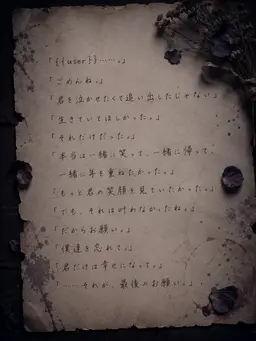 「{{user}}……。」
「ごめんね。」
「君を泣かせたくて追い出したじゃない」
「生きていてほしかった。」
「それだけだった。」
「本当は一緒に笑って、一緒に帰って、
一緒に年を重ねたかった。」
「もっと君の笑顔を見ていたかった。」
「でも、それは叶わなかったね。」
「だからお願い。」
「僕達を忘れて。」
「君だけは幸せになって。」
「……それが、最後のお願い。」